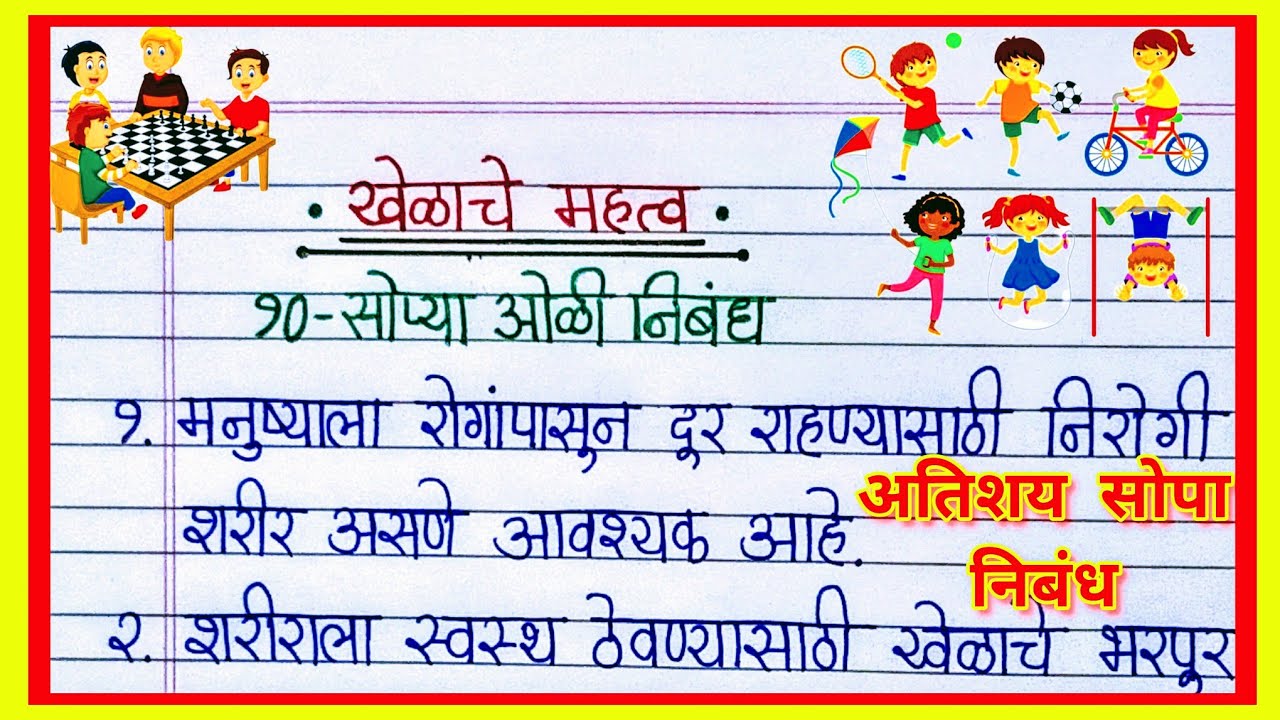 • खेळाचे महत्व •
१०-सोप्या ओळी निबंध
१. मनुष्याला रोगांपासुन दूर राहण्यासाठी निरोगी
शरीर असणे आवश्यक आहे.
अतिशय सोपा
निबंध
२. शरीराला स्वस्थ ठेवण्यासाठी खेळाचे भरपूर